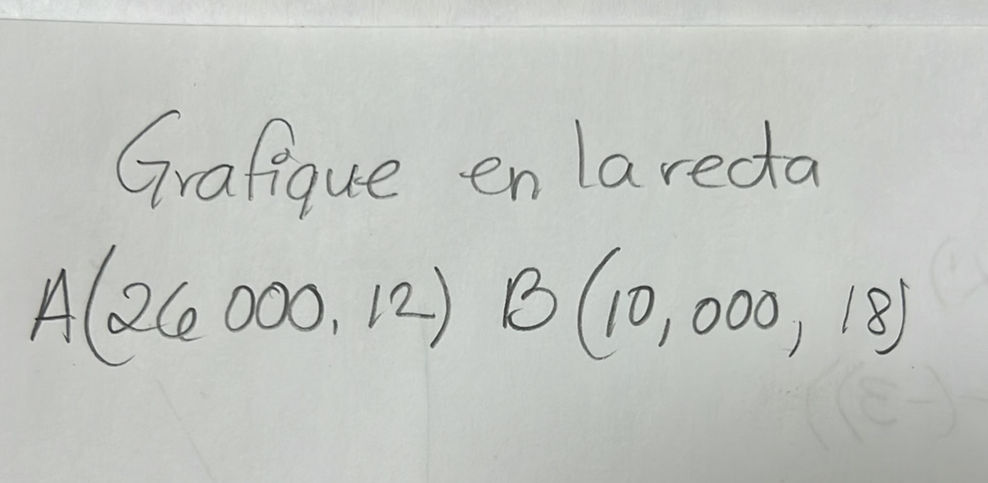 Grafique en la recta
A(26 000, 12) B (10,000, 18)